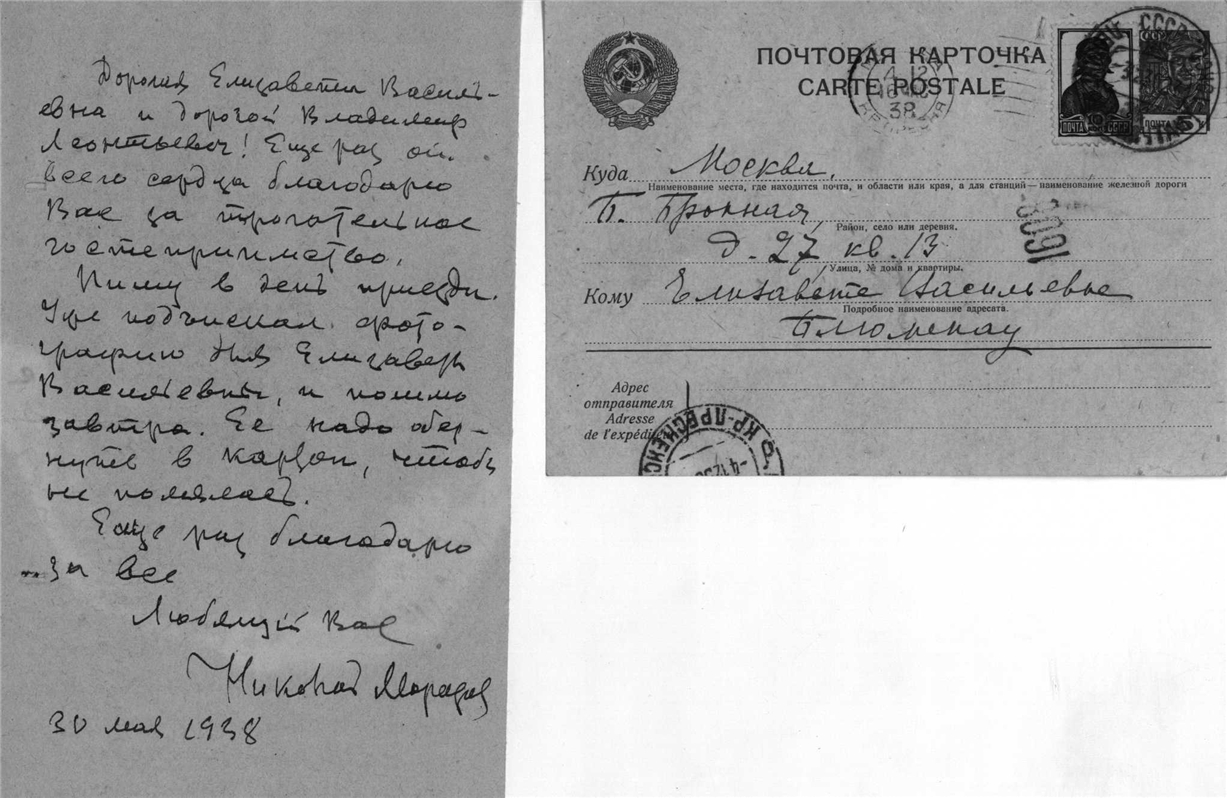 Дорогая Елизавета Василь-
евна и дорогой Владимир
Леонтьевич! Еще раз от
всего сердца благодарю
Вас за трогательное
гостеприимство.
Пишу в день приезда.
Уже подыскал фото-
графию для Елизаветы
Васильевны, и пошлю
завтра. Ее надо обер-
нуть в картон, чтобы
не помялась.
Еще раз благодарю
за все
Любящий Вас
Николай Морозов
30 мая 1938
ПОЧТОВАЯ КАРТОЧКА
CARTE POSTALE
ПОЧТА 10 СССР
ПОЧТА
СССР
38
Куда Москва.
Наименование места, где находится почта, и области или края, а для станций — наименование железной дороги
Б. Бронная,
Район, село или деревня.
д. 27 кв. 13
Улица, № дома и квартиры.
Кому Елизавете Васильевне
Подробное наименование адресата.
Адрес
отправителя
Adresse
de l'expédit
КР-ПРЕСНЕНС